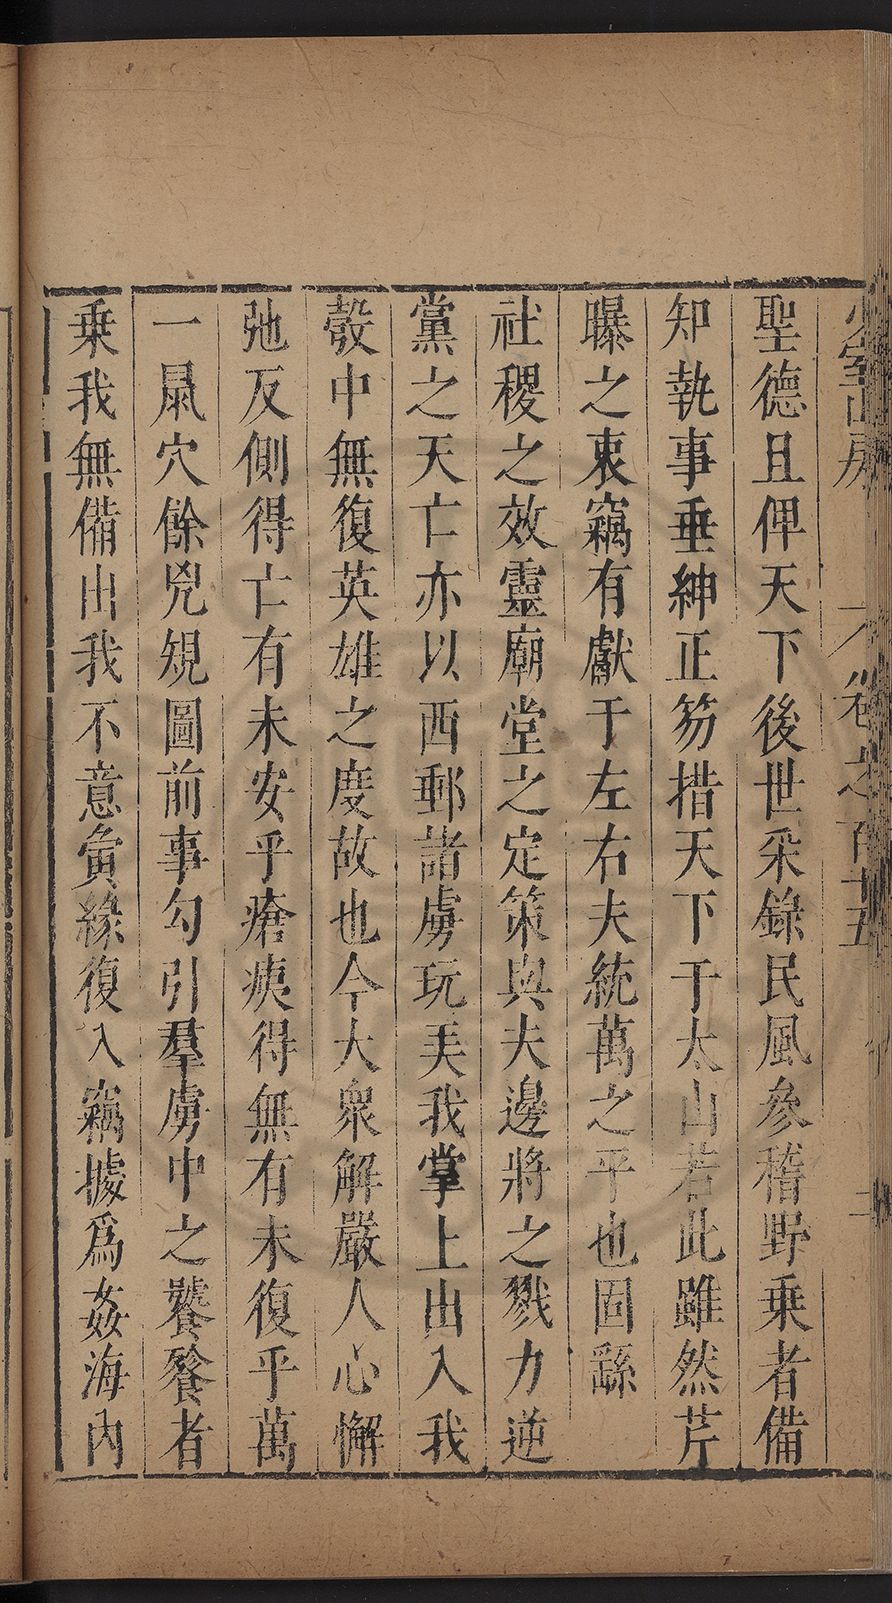 少室山房 卷之百十五 二
聖德且俾天下後世采錄民風參稽野乗者備
知執事垂紳正笏措天下于太山若此雖然芹
曝之衷竊有獻于左右夫統萬之平也固繇
社稷之效靈廟堂之定策與夫邊將之戮力逆
黨之天亡亦以西郵諸虜玩弄我掌上出入我
彀中無復英雄之度故也今大衆解嚴人心懈
弛反側得亡有未安乎瘡痍得無有未復乎萬
一鼠穴餘兇規圖前事勾引羣虜中之饕餮者
乗我無備出我不意夤緣復入竊據爲姦海內